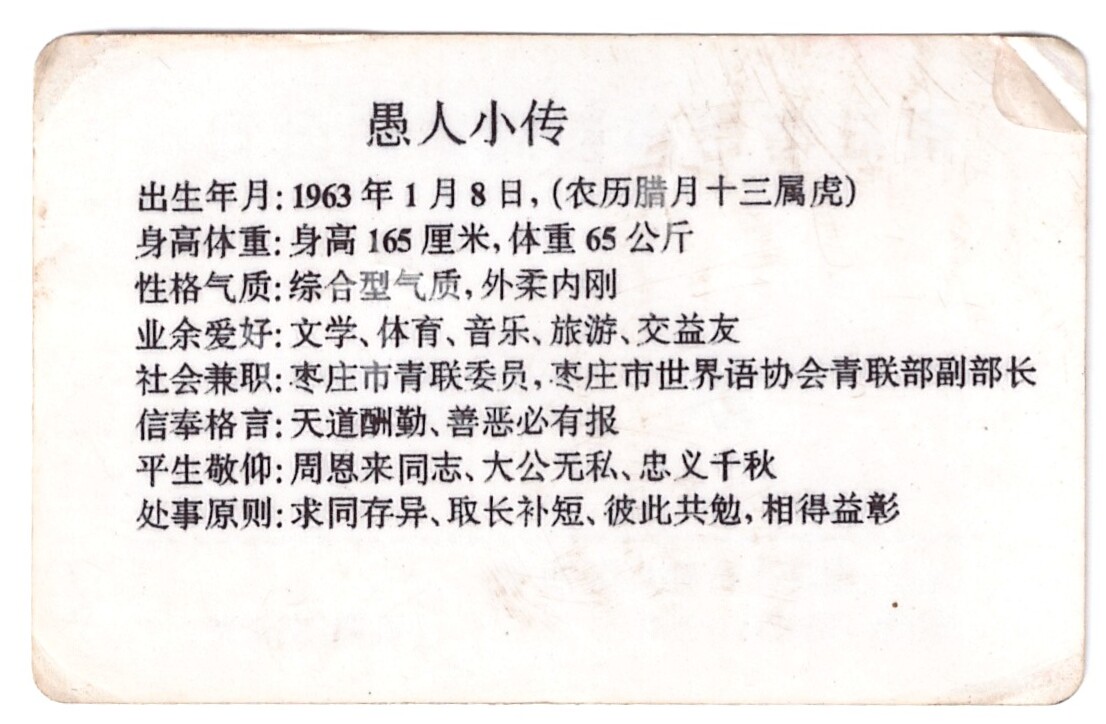 愚人小传
出生年月: 1963 年 1 月 8 日, (农历腊月十三属虎)
身高体重: 身高 165 厘米, 体重 65 公斤
性格气质: 综合型气质, 外柔内刚
业余爱好: 文学、体育、音乐、旅游、交益友
社会兼职: 枣庄市青联委员, 枣庄市世界语协会青联部副部长
信奉格言: 天道酬勤、善恶必有报
平生敬仰: 周恩来同志、大公无私、忠义千秋
处事原则: 求同存异、取长补短、彼此共勉, 相得益彰